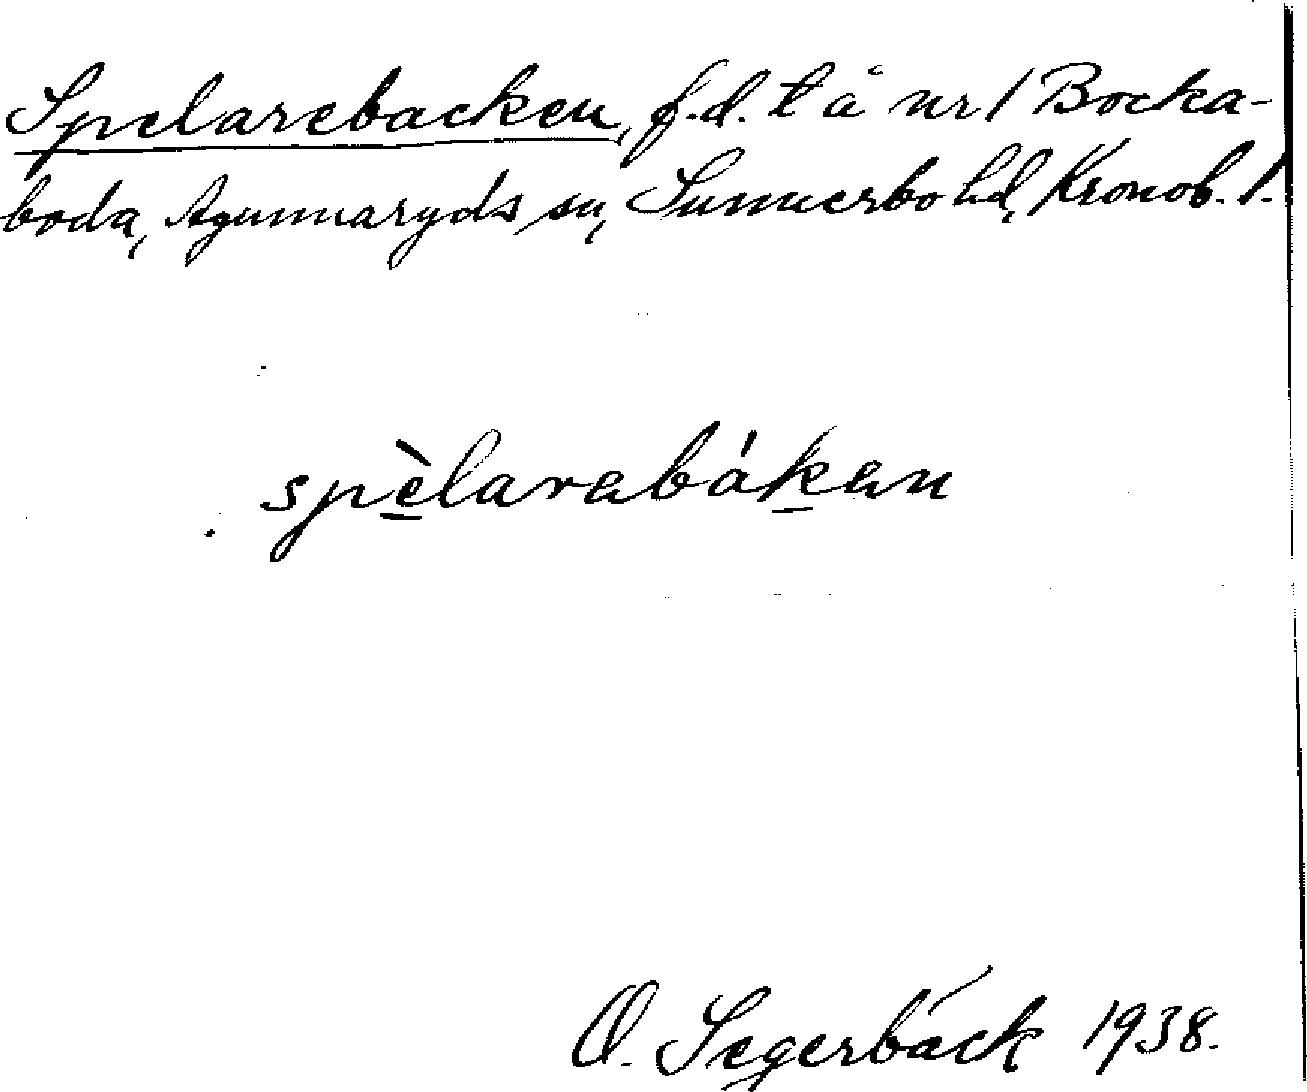 Spelarebacken, f.d. t å nr 1 Bocka-
boda, Agunnaryds sn, Sunnerbo hd, Kronob. l.
spèlarabákan
O. Segerbäck 1938.